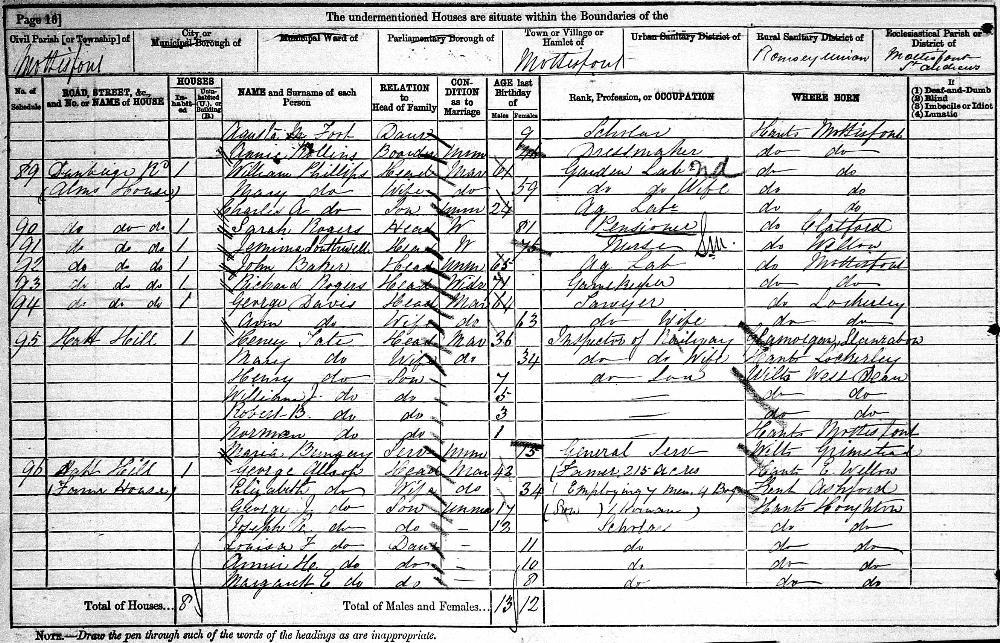 Page 16] The undermentioned Houses are situate within the Boundaries of the
Civil Parish [or Township] of City or Municipal Borough of Municipal Ward of Parliamentary Borough of Town or Village or Hamlet of Urban Sanitary District of Rural Sanitary District of Ecclesiastical Parish or District of
Mottisfont Mottisfont Romsey Union Mottisfont St Andrews
No. of Schedule ROAD, STREET, &c., and No. or NAME of HOUSE HOUSES Inhabited Uninhabited (U.), or Building (B.) NAME and Surname of each Person RELATION to Head of Family CONDITION as to Marriage AGE last Birthday of Males Females Rank, Profession, or OCCUPATION WHERE BORN If (1) Deaf-and-Dumb (2) Blind (3) Imbecile or Idiot (4) Lunatic
Foot Daur 9 Scholar Hants Mottisfont
Annie Rollins Boarder Unm Dressmaker do do
89 Dunbridge Rd 1 William Phillips Head Mar 61 Garden Lab do do
(Alms House) Mary do Wife do 59 do do Wife do do
Charles A. do Son Unm 24 Ag Lab do do
90 do do do 1 Sarah Rogers Head W 81 Pensioner do Clatford
91 do do do 1 Jemima Southwell Head W 75 Nurse do Wellow
92 do do do 1 John Baker Head Unm 65 Ag Lab do Mottisfont
93 do do do 1 Richard Rogers Head Widr 71 Gamekeeper do do
94 do do do 1 George Davis Head Mar 64 Sawyer do Lockerley
Ann do Wife do 63 do Wife do do
95 Hatt Hill 1 Henry Tate Head Mar 36 Inspector of Railway Glamorgan,
Mary do Wife do 34 do do Wife Hants Lockerley
Henry do Son – 7 do Son Wilts West Dean
William J. do do – 5 — do do
Robert B. do do – 3 — do do
Norman do do – 1 — Hants Mottisfont
Maria Bungay Serv Unm 15 General Serv Wilts Grimstead
96 Hatt Hill 1 George Head Mar 42 (Farmer 215 acres Hants E. Wellow
(Farm House) Elizabeth do Wife do 34 (Employing 7 Men 4 Boys Kent Ashford
George J. do Son Unm 17 (Son) Hants Houghton
Joseph do do – 13 Scholar do do
Louisa F. do Daur – 11 do do do
Annie H. do do – 10 do do do
Margaret E. do do – 8 do do do
Total of Houses... 8 Total of Males and Females... 13 12
NOTE.—Draw the pen through such of the words of the headings as are inappropriate.